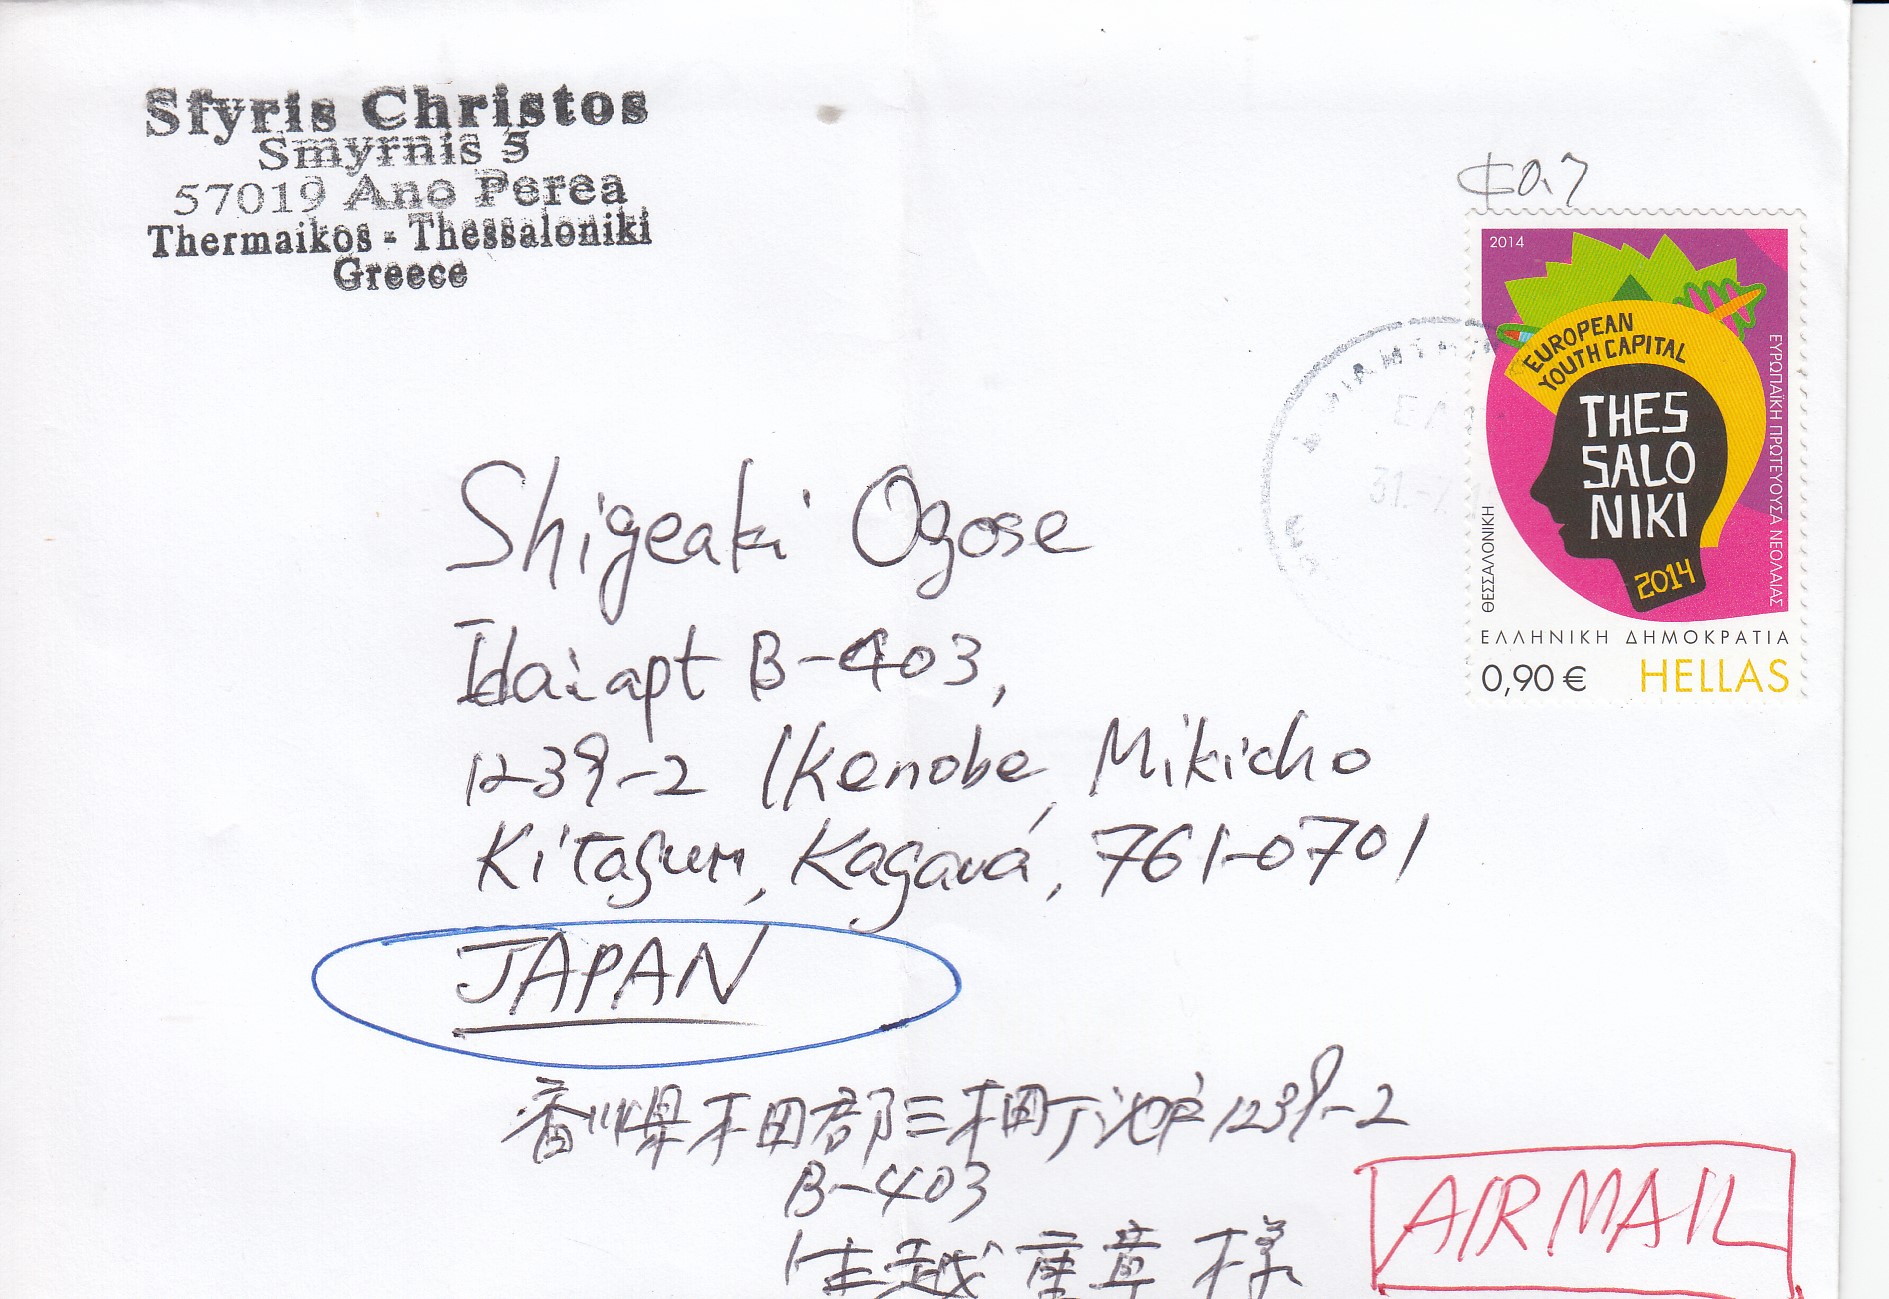 Sfyris Christos
Smyrnis 5
57019 Ano Perea
Thermaikos - Thessaloniki
Greece
0.7
2014
EUROPEAN
YOUTH CAPITAL
THES
SALO
NIKI
2014
ΘΕΣΣΑΛΟΝΙΚΗ
ΕΥΡΩΠΑΪΚΗ ΠΡΩΤΕΥΟΥΣΑ ΝΕΟΛΑΙΑΣ
ΕΛΛΗΝΙΚΗ ΔΗΜΟΚΡΑΤΙΑ
0,90 € HELLAS
Shigeaki Ogose
Idai apt B-403,
1239-2 Ikenobe, Mikicho
Kitagun, Kagawa, 761-0701
JAPAN
香川県木田郡三木町池戸1239-2
B-403
生越重章 様
AIR MAIL